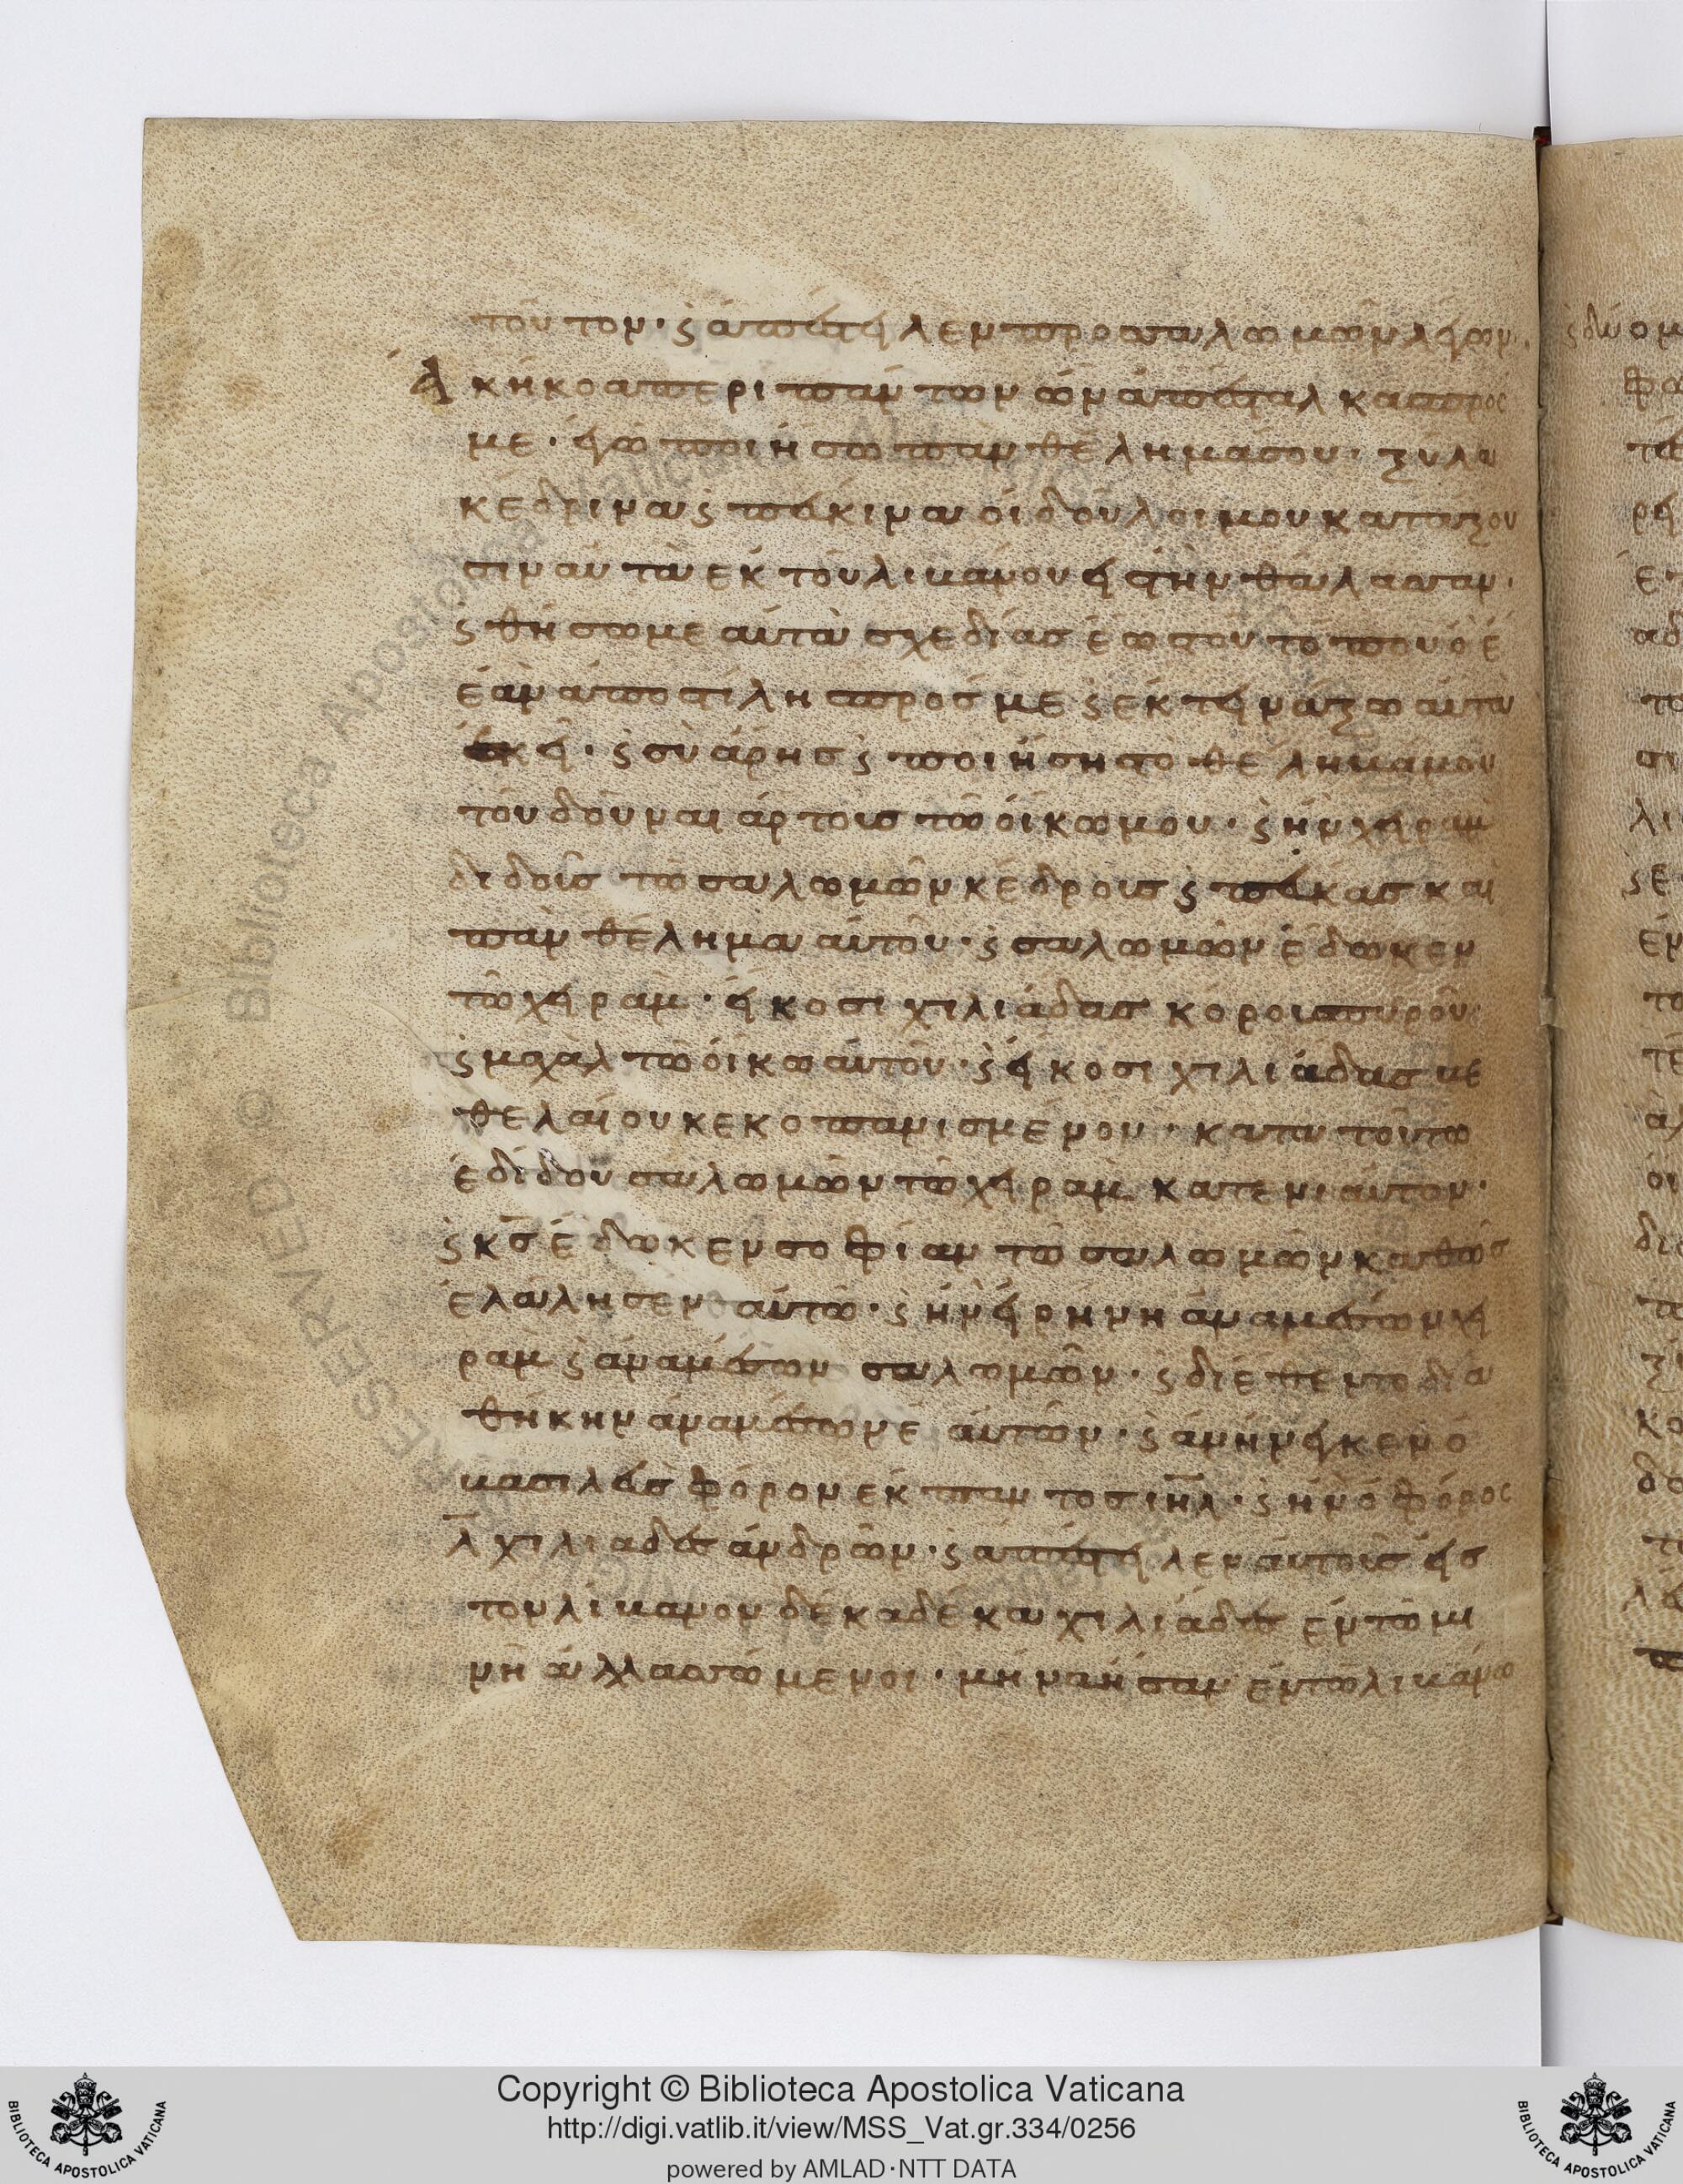 τοῦτον· ϛ ἀπέστειλεν προσαλωμῶν λέγων·
Ἀκήκοα περὶ πάντων ὧν ἀπέσταλκας πρός
με· ἐγὼ ποιήσω πᾶν θέλημά σου· ξύλα
κέδρινα ϛ πεύκινα οἱ δοῦλοι μου κατάξου
σιν αὐτὰ ἐκ τοῦ λιβάνου εἰ τὴν θάλασσαν·
ϛ θήσωμε αὐτὰ σχεδίας ἕως τοῦ τόπου οὗ
ἐὰν ἀποστίλη πρός με ϛ ἐκτεινάξω αὐτὰ
ἐκεῖ· ϛ σὺ ἄρης ϛ ποιήση τὸ θέλημά μου
τοῦ δοῦναι ἄρτους τῶ οἴκω μου· ϛ ἦν χειρὰμ
διδοὺς τῶ σαλωμῶν κέδρους ϛ πεύκας καὶ
πᾶν θέλημα αὐτοῦ· ϛ σαλωμῶν ἔδωκεν
τῶ χειράμ· εἴκοσι χιλιάδας κόρους πυροῦ
ϛ μαχὰλ τῶ οἴκω αὐτοῦ· ϛ εἴκοσι χιλιάδας βε
θ ελαίου κεκοπανισμένου· κατὰ τοῦτο
ἐδίδου σαλωμῶν τῶ χειρὰμ κατενιαυτόν·
ϛ κς ἔδωκεν σοφίαν τῶ σαλωμῶν καθὼς
ἐλάλησεν αὐτῶ· ϛ ἦν εἰρήνη ἀναμέσων χει
ρὰμ ϛ ἀναμέσων σαλωμῶν· ϛ διέθεντο δια
θήκην ἀναμέσων ἑαυτῶν· ϛ ἀνήνεγκεν ὁ
βασιλεὺς φόρον ἐκ παντὸς ιηλ· ϛ ἦν ὁ φόρος
λ χιλιάδες ἀνδρῶν· ϛ ἀπέστειλεν αὐτοὺς εἰς
τὸν λίβανον δέκα δέκα χιλιάδες ἐν τῶ μι
νὴ ἀλλασσώμενοι· μῆνα ἦσαν ἐν τῶ λιβάνω
Copyright © Biblioteca Apostolica Vaticana
http://digi.vatlib.it/view/MSS_Vat.gr.334/0256
powered by AMLAD·NTT DATA
BIBLIOTECA APOSTOLICA VATICANA
BIBLIOTECA APOSTOLICA VATICANA